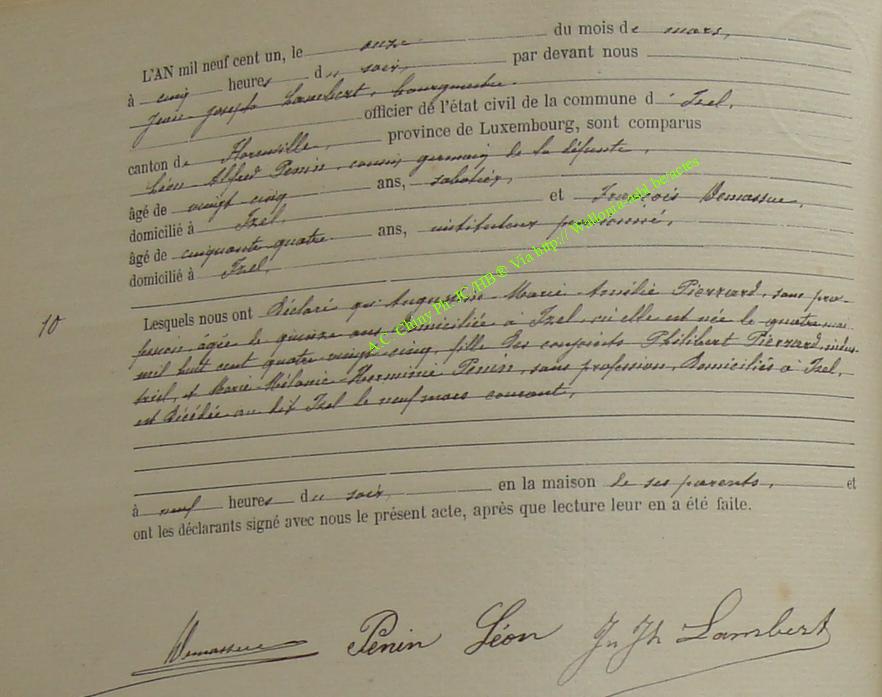 L'AN mil neuf cent un, le onze du mois de mars,
à cinq heures du soir, par devant nous
Jean-Joseph Lambert, bourgmestre
officier de l'état civil de la commune d'Izel,
canton de Florenville, province de Luxembourg, sont comparus
Léon Alfred Penin, cousin germain de la défunte,
âgé de vingt cinq ans, sabotier,
domicilié à Izel et François Demasse,
âgé de cinquante quatre ans, instituteur pensionné,
domicilié à Izel.
10
Lesquels nous ont déclaré que Marie Amélie Pierrard, sans pro-
fession, âgée de quinze ans, domiciliée à Izel, où elle est née le quatre mai
mil huit cent quatre vingt-cinq, fille des conjoints Philibert Pierrard, indus-
triel, et Marie-Mélanie-Hermine Penin, sans profession, domiciliés à Izel,
est décédée au dit Izel le neuf mars courant,
à neuf heures du soir, en la maison de ses parents, et
ont les déclarants signé avec nous le présent acte, après que lecture leur en a été faite.
Penin Léon Jn Jh Lambert
A.C. Chiny Ph. JC/HB ® Via http:// Wallonia-asbl.be/actes